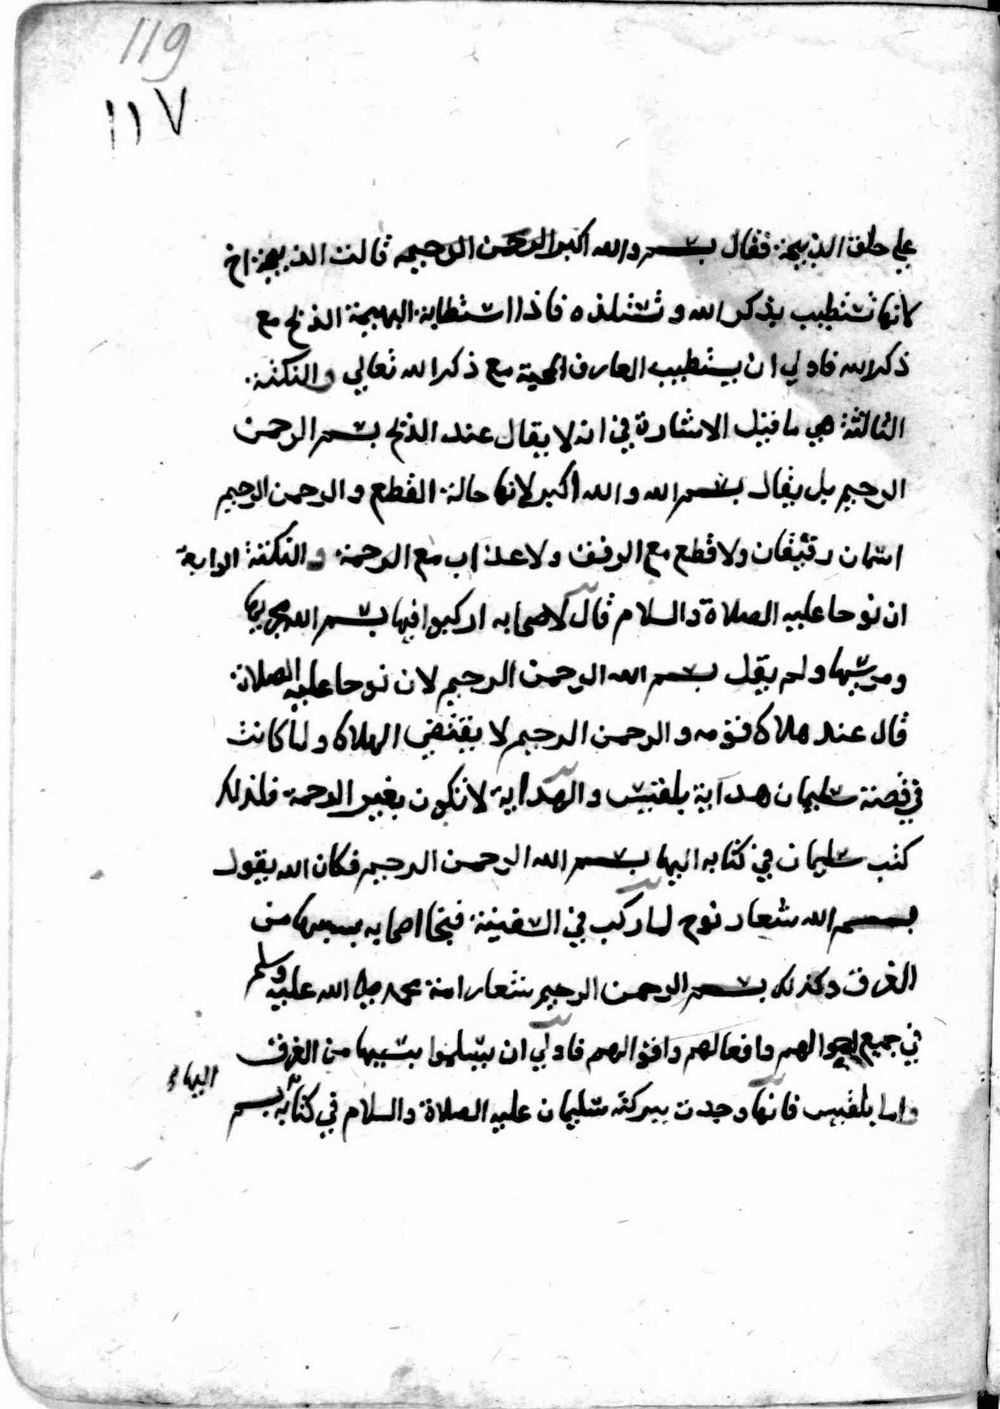 119
١١٧
علي حلق الذبيحة فقال بسم والله اكبر الرحمن الرحيم قالت الذبيحة اخ
لانها تستطيب بذكر الله وتستلذه فاذا استطابة البهيمة الذبح مع
ذكر الله فاولي ان يستطيب العارف المحبة مع ذكر الله تعالي والنكتة
الثالثة هي ما قيل الاشارة في انه لا يقال عند الذبح بسم الرحمن
الرحيم بل يقال بسم الله والله اكبر لانها حالة القطع والرحمن الرحيم
اسمان رقيقان ولا قطع مع الرفق ولا عذاب مع الرحمة والنكتة الرابعة
ان نوحا عليه الصلاة والسلام قال لاصحابه اركبوا فيها بسم الله مجريها
ومرسيها ولم يقل بسم الله الرحمن الرحيم لان نوحا عليه الصلاة
قال عند هلاك قومه والرحمن الرحيم لا يقتضي الهلاك ولما كانت
في قصة سليمان هداية بلقيس والهداية لا تكون بغير الرحمة فلذلك
كتب سليمان في كتابه اليها بسم الله الرحمن الرحيم فكان الله يقول
بسم الله شعار نوح لما ركب في السفينة فنجا اصحابه بسببها من
الغرق وكذلك بسم الرحمن الرحيم شعار امة محمد صلي الله عليه وسلم
في جميع احوالهم وافعالهم واقوالهم فاولي ان يسلموا بسببها من الغرق
واما بلقيس فانها وجدت ببركة سليمان عليه الصلاة والسلام في كتابه بسم
اليها